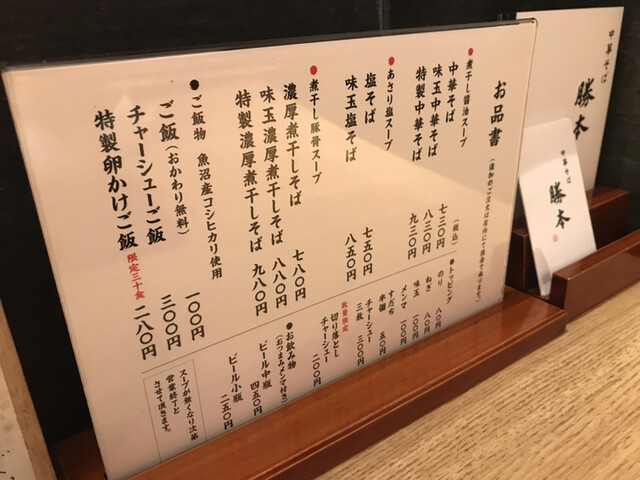 お品書
(追加のご注文は店内にて現金でありります。)
●煮干し醤油スープ
(税込)
中華そば 七三〇円
味玉中華そば 八三〇円
特製中華そば 九三〇円
●あさり塩スープ
塩そば 七五〇円
味玉塩そば 八五〇円
●煮干し豚骨スープ
濃厚煮干しそば 七八〇円
味玉濃厚煮干しそば 八八〇円
特製濃厚煮干しそば 九八〇円
●ご飯物 魚沼産コシヒカリ使用
ご飯(おかわり無料) 一〇〇円
チャーシューご飯 三〇〇円
特製卵かけご飯 限定三十食 二八〇円
●トッピング
のり 八〇円
ねぎ 八〇円
味玉 一〇〇円
メンマ 一〇〇円
すだち
半個 五〇円
チャーシュー
三枚 三〇〇円
数量限定
切り落とし
チャーシュー 二〇〇円
●お飲み物
(おつまみメンマ付き)
ビール中瓶 四五〇円
ビール小瓶 二五〇円
スープが無くなり次第
営業終了と
させて頂きます。
中華そば
勝本
中華そば
勝本